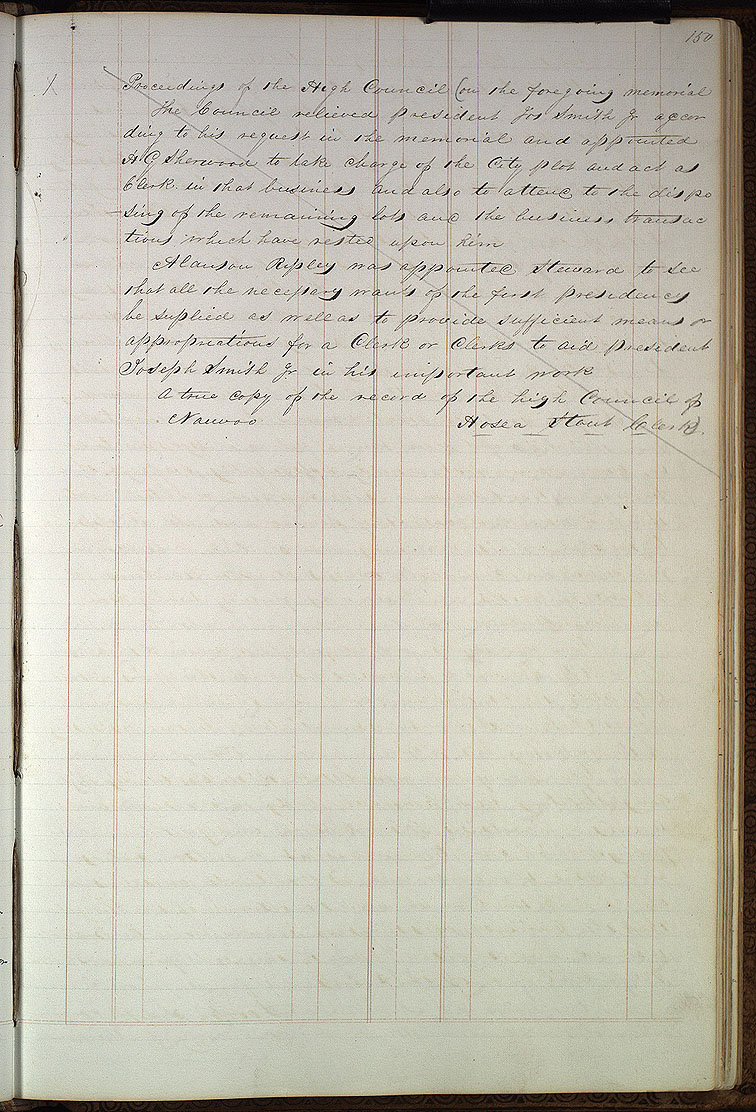 150
X
Proceedings of the High Council (on the foregoing memorial
The Council relieved president Jos Smith Jr accor
ding to his request in the memorial and appointed
H. C. Sherwood to take charge of the City plot and act as
Clerk. in that business and also to attend to the dispo
-sing of the remaining lots and the business transac
tions which have rested upon him
Alanson Ripley was appointed Steward to see
that all the necessary wants of the first presidency
be suplied as well as to provide sufficient means or
appropriations for a Clerk or Clerks to aid president
Joseph Smith Jr in his important work
A true copy of the record of the high Council of
Nauvoo Hosea Stout Clerk.